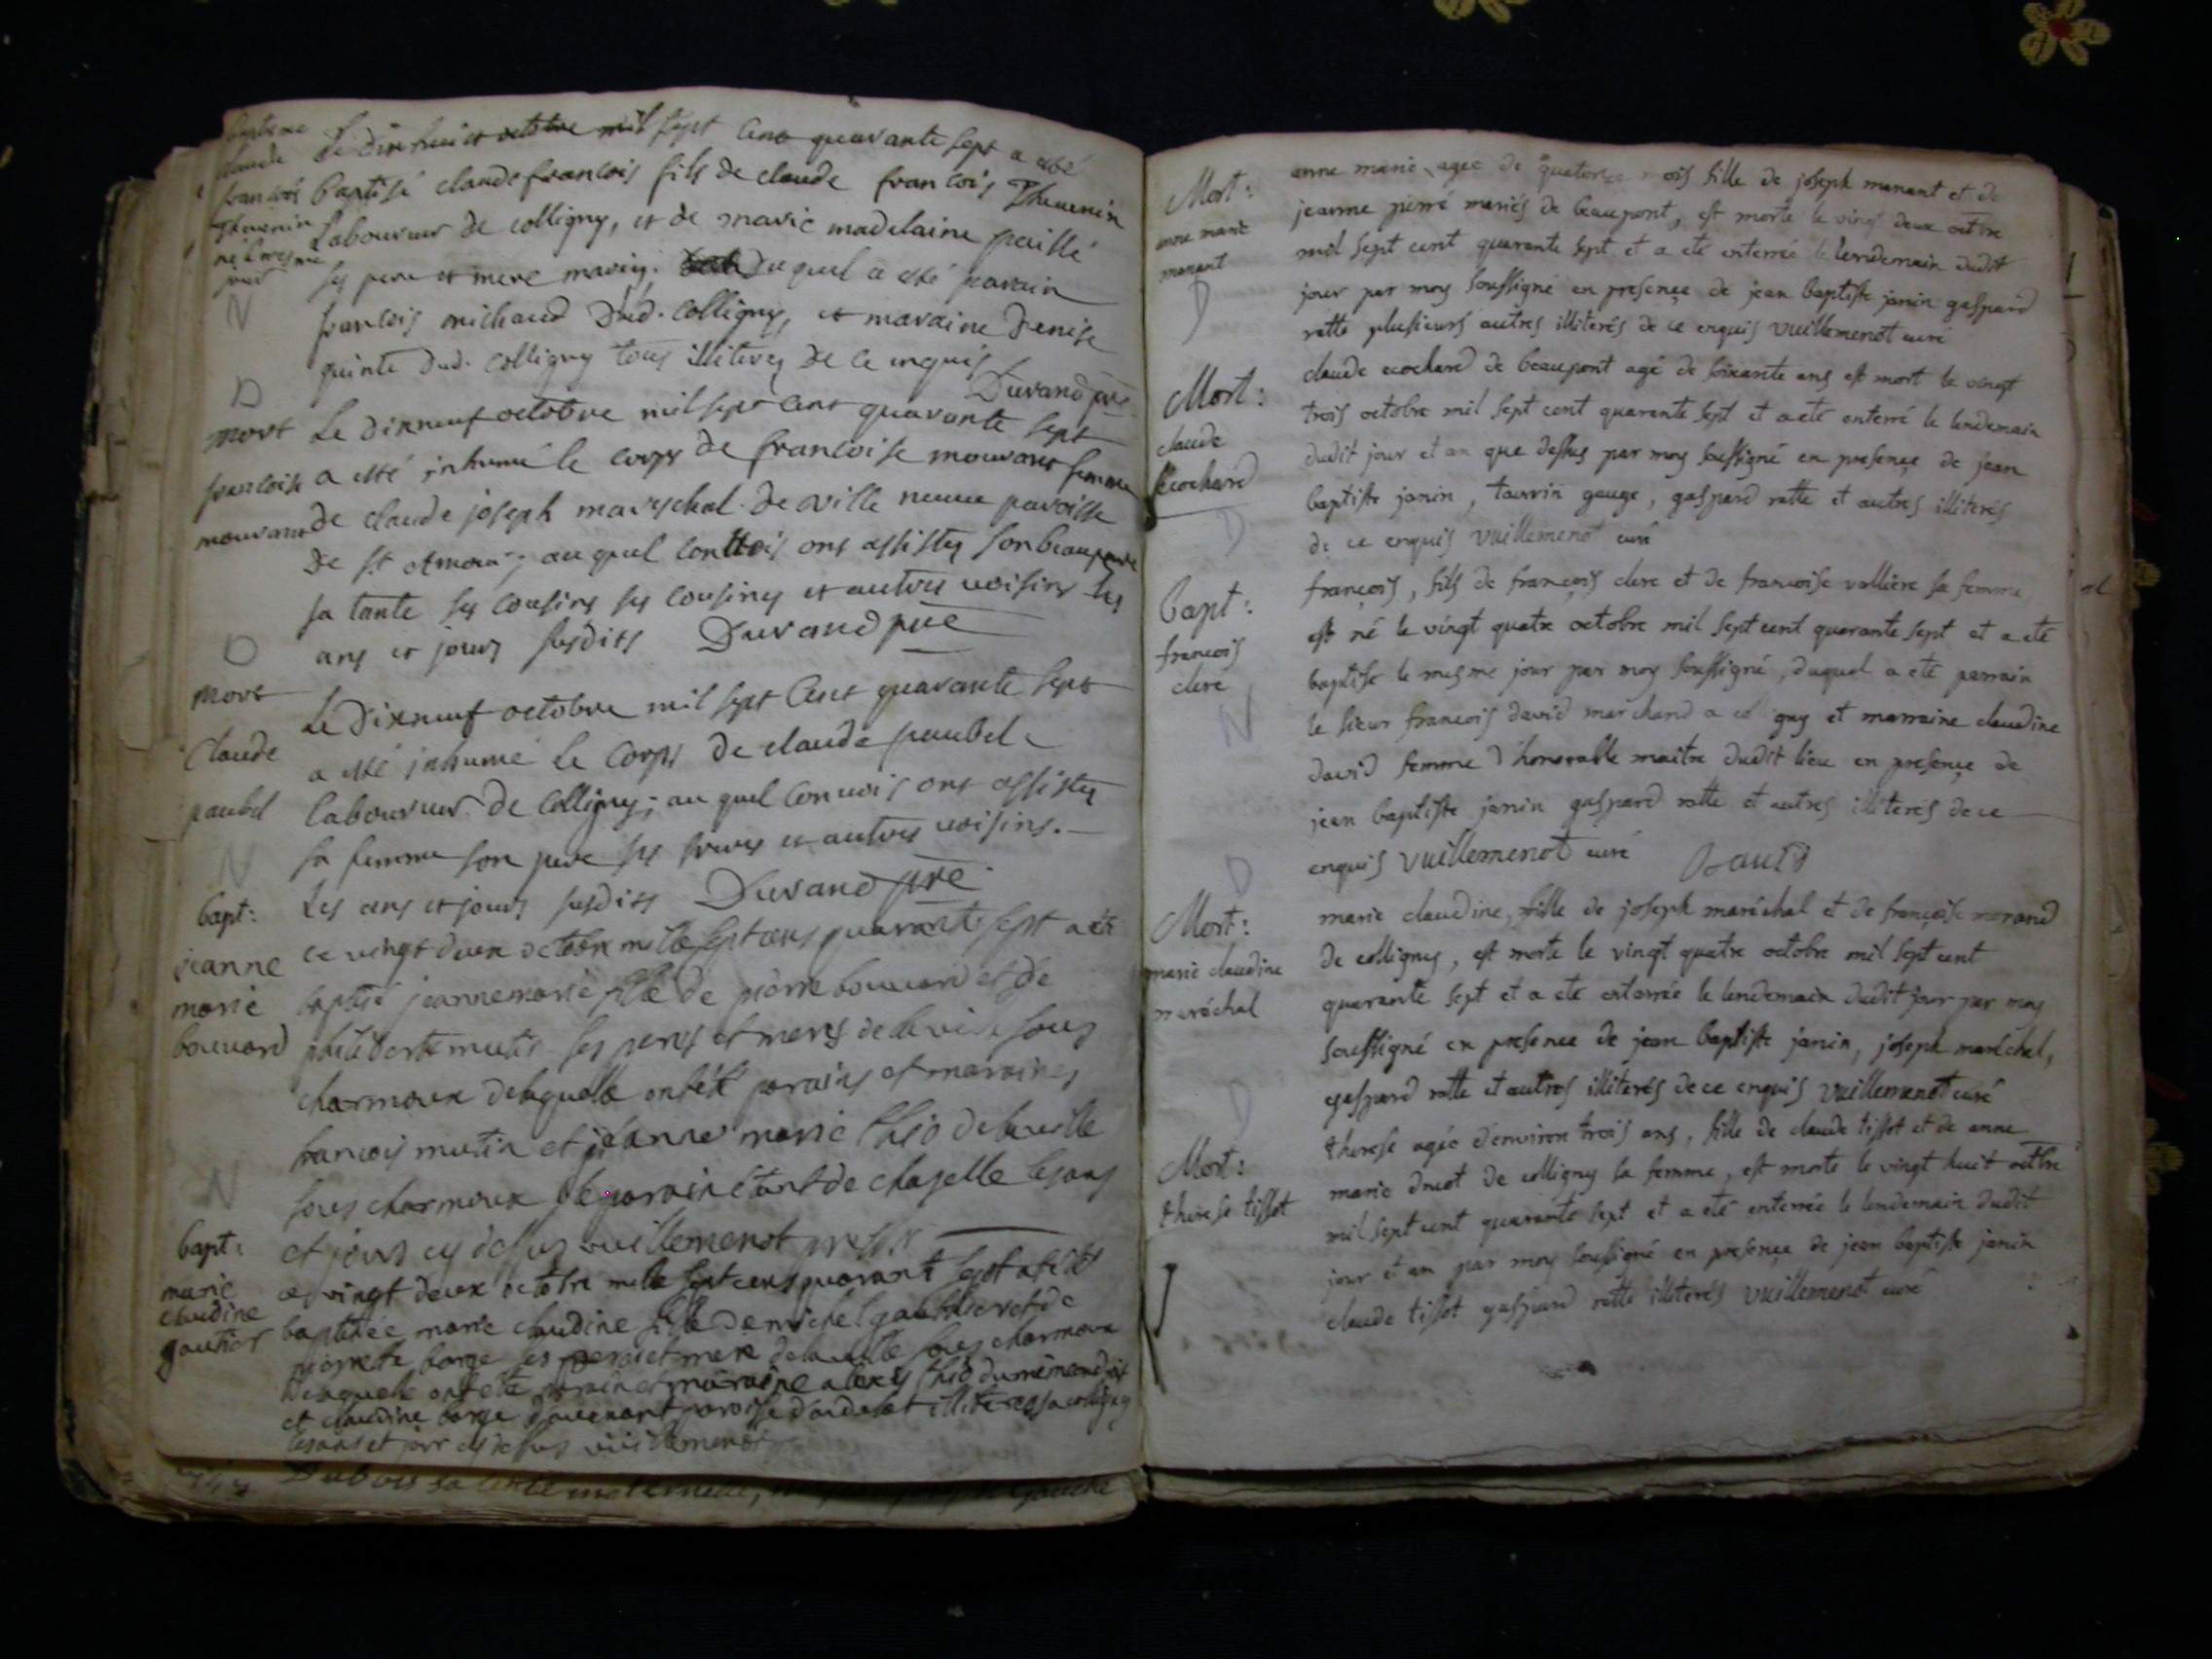 baptesme
claude
francois
Thevenin
né le mesme
jour
N
Le dixhuict octobre mil sept cent quarante sept a esté
Baptisé claude francois fils de claude francois Thevenin
Laboureur de colligny, et de marie madelaine paillé
ses pere et mere mariez. Duquel a esté parain
francois michaud dud. Colligny, et maraine Denise
quinte dud. Colligny tous illiterez de ce enquis
Durand pre
D
mort
francoise
mouvand
Le dixneuf octobre mil sept cent quarante sept
a esté inhumé le corps de francoise mouvant femme
de claude joseph mareschal de ville neuve paroisse
de st Amour; auquel convois ont assistez son beaupere
sa tante ses cousins ses cousines et autres voisins les
ans et jours susdits Durand pre
D
mort
Claude
paubel
Le dixneuf octobre mil sept cent quarante sept
a esté inhumé le corps de claude paubel
laboureur de Colligny; au quel convois ont assistez
sa femme son pere ses freres et autres voisins.
Les ans et jours susdits Durand pre
N
bapt:
jeanne
marie
bouvard
ce vingt deux octobre mille sept cens quarante sept a été
baptisé jeanne marie fille de pierre bouvard et de
philiberte mutin ses peres et meres de la ville sous
charmoux delaquelle ont été parains et maraines
francois mutin et jeanne marie thio de la ville
sous charmoux le parain étant de chazelle les ans
et jours cy dessus vuillemenot
N
bapt:
marie
claudine
gautier
ce vingt deux octobre mille sept cens quarante sept a été
baptisée marie claudine fille de michel gauthier et de
pierrette borge ses peres et mere de la ville sous charmoux
delaquelle ont été parain et maraine alexis thio du même endroit
et claudine borge paroisse illiteres a colligny
les ans et jour cy dessus vuillemenot
Dubois sa tante maternelle, gauche
Mort:
anne marie
manant
D
anne marie, agée de quatorze mois fille de joseph manant et de
jeanne pierré mariés de beaupont, est morte le vingt deux octbre
mil sept cent quarante sept et a été enterrée le lendemain dudit
jour par moy soussigné en presence de jean baptiste janin gaspard
ratte plusieurs autres illiterés de ce enquis vuillemenot curé
Mort:
claude
Ecochard
D
claude ecochard de beaupont agé de soixante ans est mort le vingt
trois octobre mil sept cent quarante sept et a eté enterré le lendemain
dudit jour et an que dessus par moy soussigné en presence de jean
baptiste janin, taurin gauge, gaspard ratte et autres illiterés
de ce enquis vuillemenot curé
bapt:
francois
clerc
N
françois, fils de françois clerc et de francoise vallière sa femme
est né le vingt quatre octobre mil sept cent quarante sept et a eté
baptisé le mesme jour par moy soussigné, duquel a eté parrain
le sieur francois david marchand a coligny et marraine claudine
david femme d'honorable maitre dudit lieu en presence de
jean baptiste janin gaspard ratte et autres illiterés de ce
enquis vuillemenot curé David
D
Mort:
marie claudine
maréchal
marie claudine, fille de joseph maréchal et de françoise morand
de colligny, est morte le vingt quatre octobre mil sept cent
quarante sept et a eté enterrée le lendemain dudit jour par moy
soussigné en presence de jean baptiste janin, joseph maréchal,
gaspard ratte et autres illiterés de ce enquis vuillemenot curé
D
Mort:
therese tissot
therese agée d'environ trois ans, fille de claude tissot et de anne
marie de colligny sa femme, est morte le vingt huit octbre
mil sept cent quarante sept et a eté enterrée le lendemain dudit
jour et an par moy soussigné en presence de jean baptiste janin
claude tissot gaspard ratte illiterés vuillemenot curé